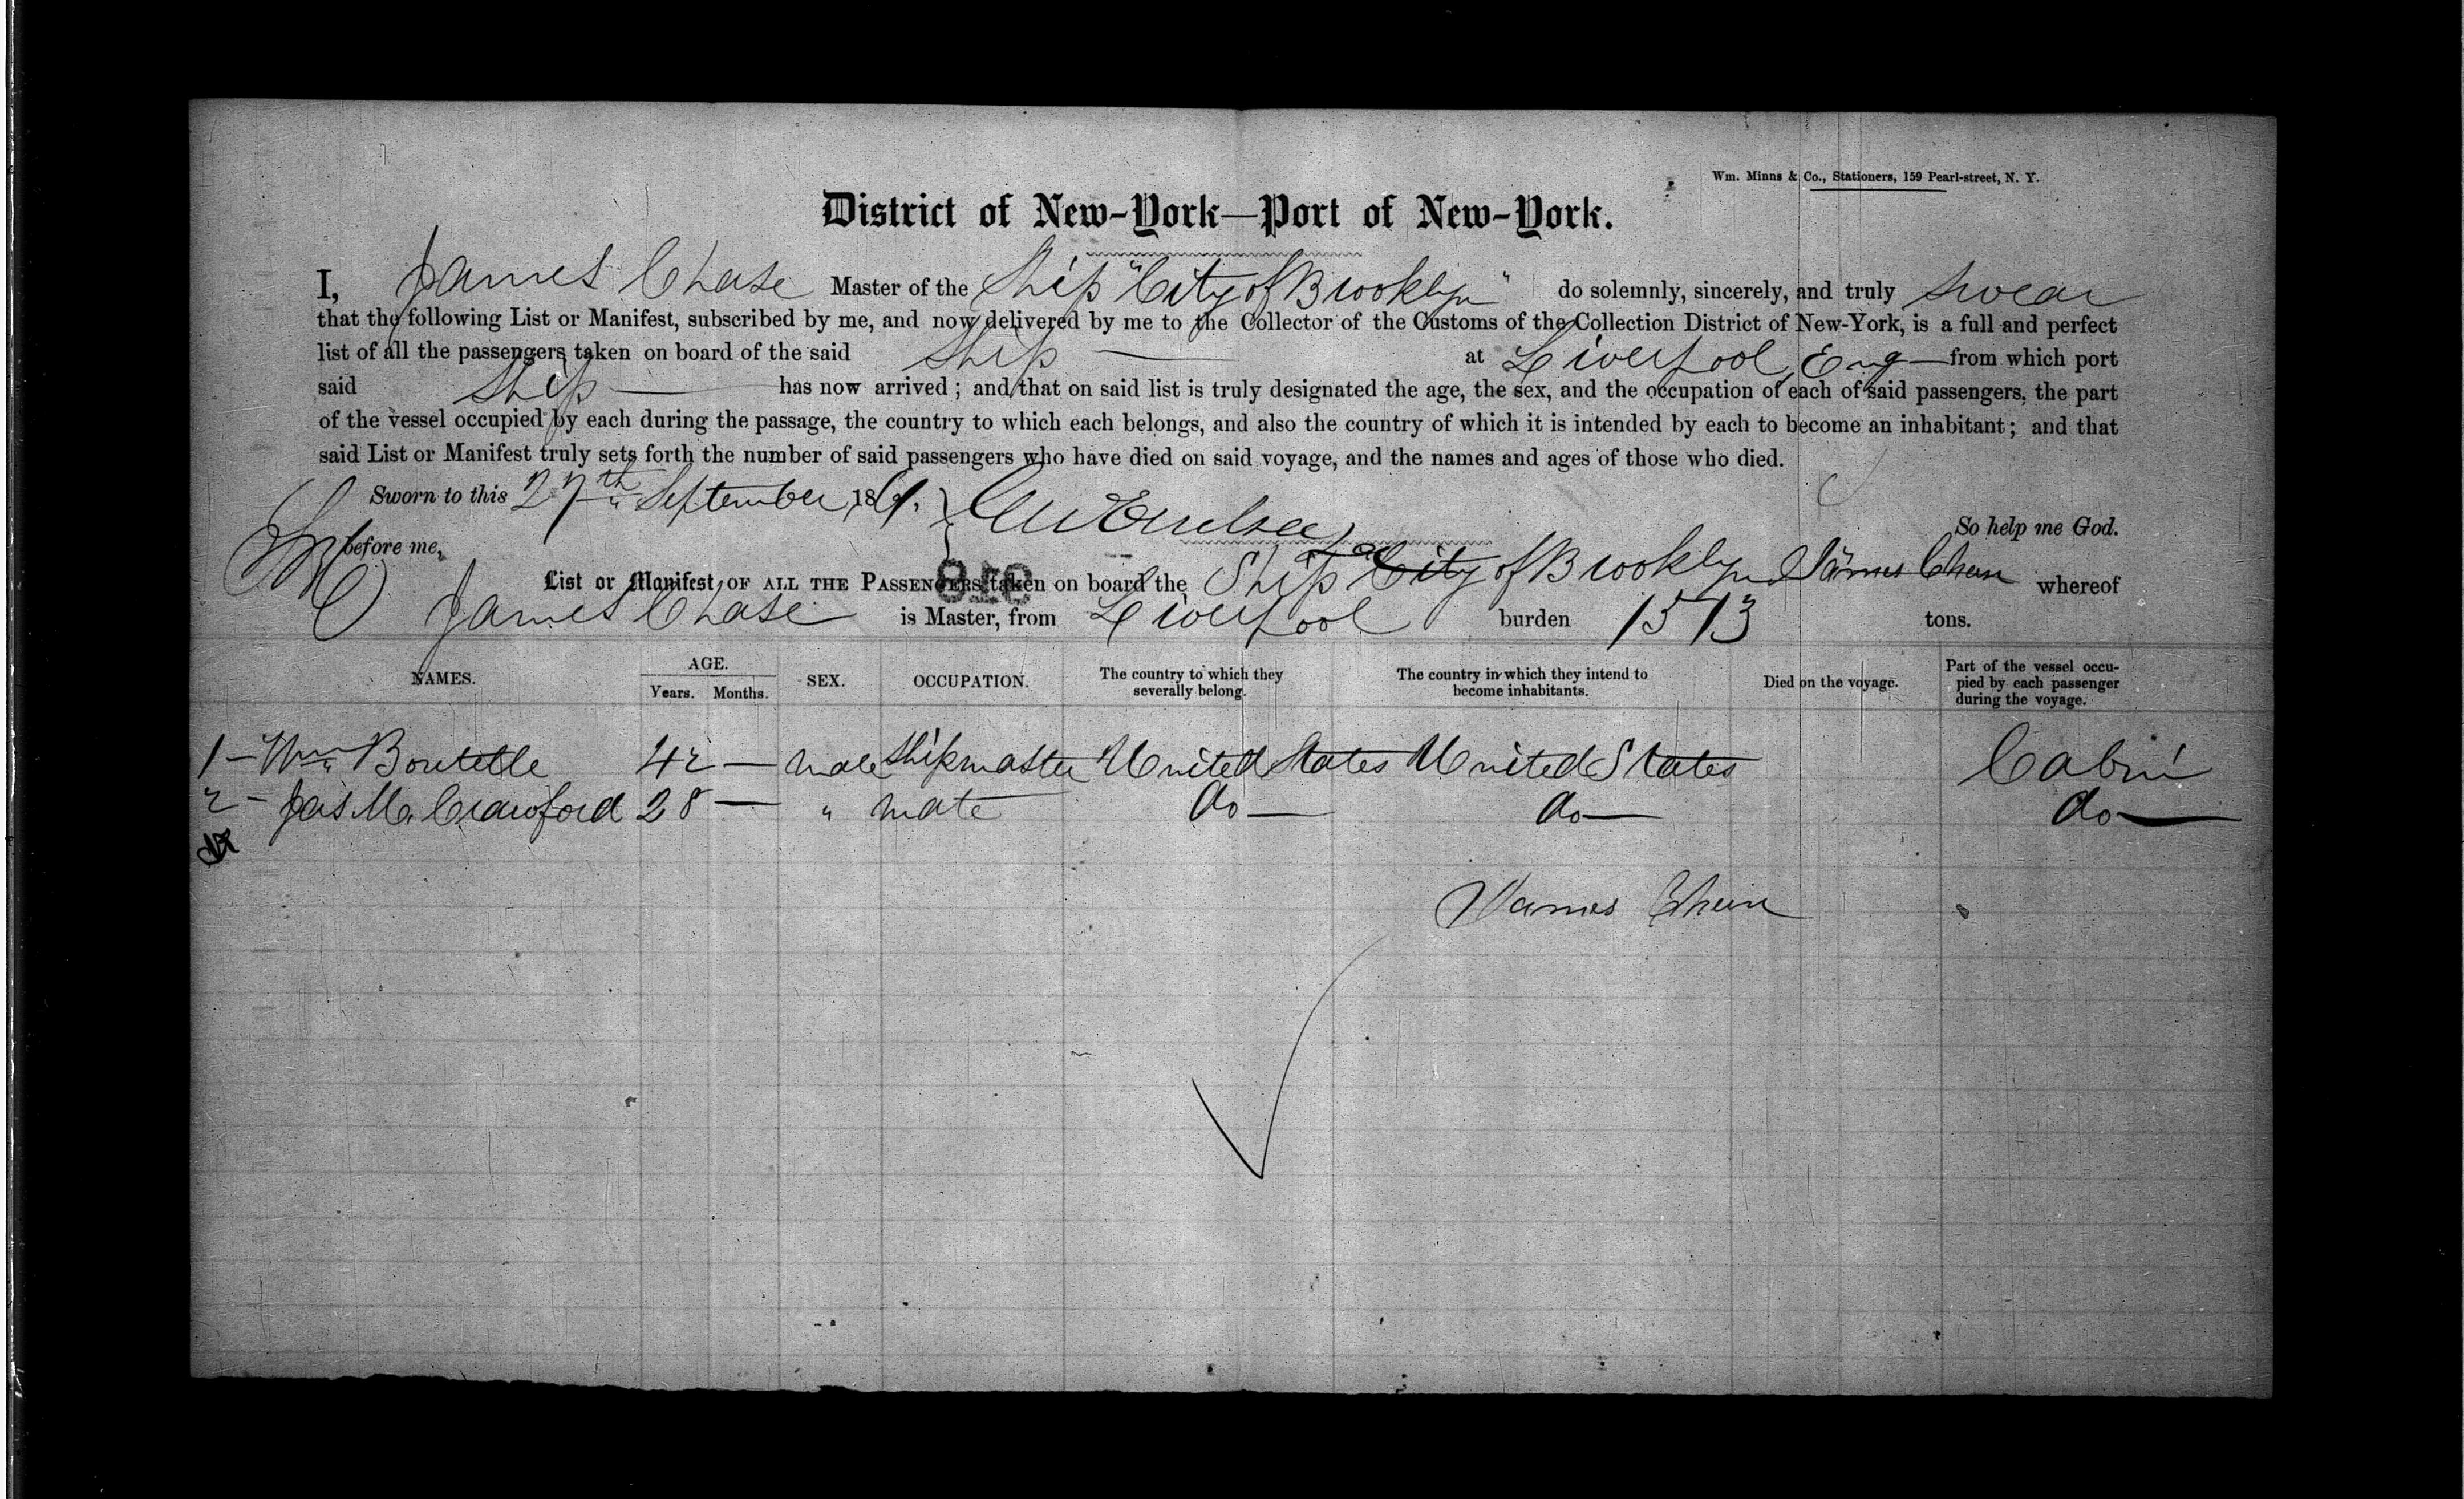 Wm. Minns & Co., Stationers, 159 Pearl-street, N. Y.
District of New-York—Port of New-York.
I, James Chase Master of the Ship "City of Brooklyn" do solemnly, sincerely, and truly swear
that the following List or Manifest, subscribed by me, and now delivered by me to the Collector of the Customs of the Collection District of New-York, is a full and perfect
list of all the passengers taken on board of the said Ship — at Liverpool, Eng — from which port
said Ship — has now arrived; and that on said list is truly designated the age, the sex, and the occupation of each of said passengers, the part
of the vessel occupied by each during the passage, the country to which each belongs, and also the country of which it is intended by each to become an inhabitant; and that
said List or Manifest truly sets forth the number of said passengers who have died on said voyage, and the names and ages of those who died.
Sworn to this 27th September, 1861.
So help me God.
before me,
List or Manifest OF ALL THE PASSENGERS taken on board the Ship City of Brooklyn James Chase whereof
James Chase is Master, from Liverpool burden 1573 tons.
NAMES. AGE. Years. Months. SEX. OCCUPATION. The country to which they severally belong. The country in which they intend to become inhabitants. Died on the voyage. Part of the vessel occu-pied by each passenger during the voyage.
1 — Wm Boutelle 42 — male Shipmaster United States United States Cabin
2 — Jas M. Crawford 28 — " mate do — do — do —
James Chase